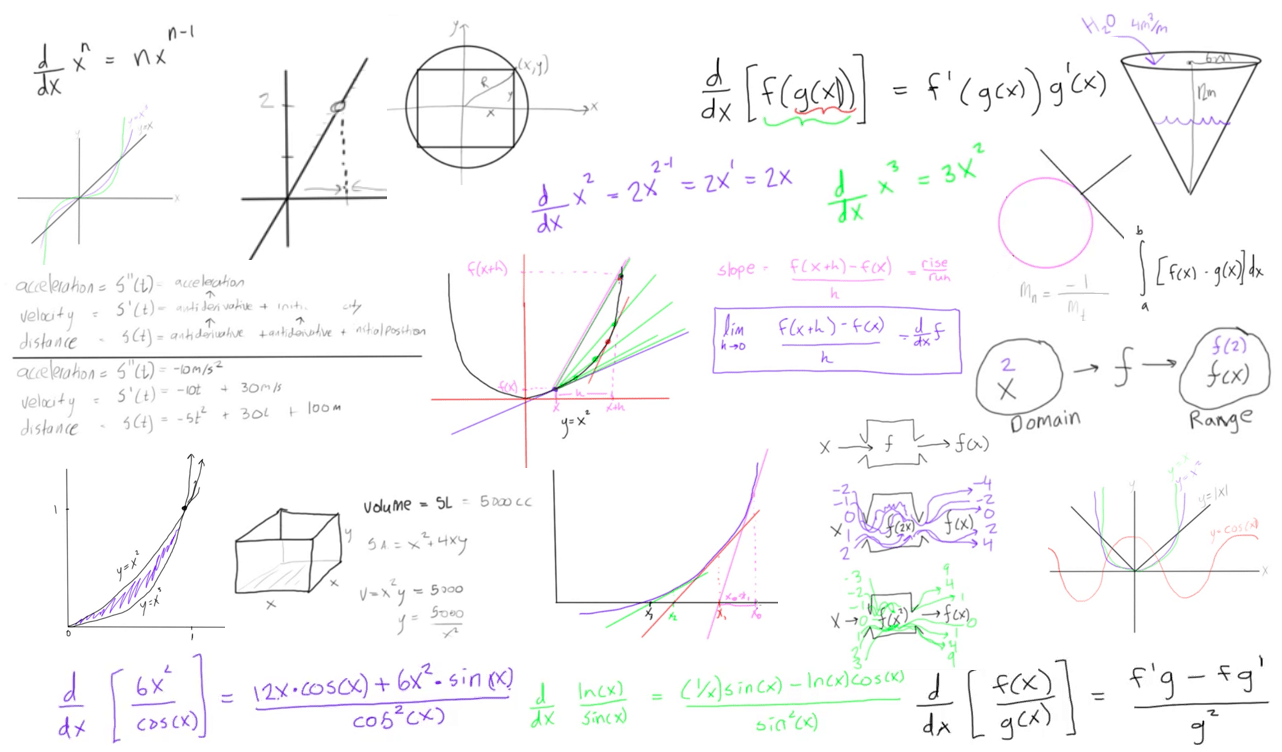 d/dx xⁿ = nxⁿ⁻¹
y
y=x³
y=x
x
2
y
(x,y)
R
y
x
x
d/dx [f(g(x))] = f'(g(x)) g'(x)
H₂O 4m³/m
6m
12m
d/dx x² = 2x²⁻¹ = 2x¹ = 2x
d/dx x³ = 3x²
mₙ = -1/mₜ
∫ₐᵇ [f(x) - g(x)] dx
acceleration = S''(t) = acceleration
velocity = S'(t) = antiderivative +
distance = S(t) = antiderivative + antiderivative + initial position
acceleration = S''(t) = -10m/s²
velocity = S'(t) = -10t + 30m/s
distance = S(t) = -5t² + 30t + 100m
f(x+h)
f(x)
h
x
x+h
y=x²
slope = f(x+h)-f(x)/h = rise/run
lim h→0 f(x+h)-f(x)/h = d/dx f
2
x
→ f →
f(2)
f(x)
Domain
Range
x → f → f(x)
-2
-1
0
1
2
x
f(2x)
f(x)
-4
-2
0
2
4
-3
-2
-1
0
1
2
3
x → f(x²) → f(x)
9
4
1
0
1
4
9
1
y=x²
y=x³
0
1
x
x
y
volume = 5L = 5000cc
SA = x²+4xy
V=x²y = 5000
y = 5000/x²
x₃
x₂
x₁
x₀-x₁
x₀
y
y=x²
y=|x|
y=cos(x)
x
d/dx [6x²/cos(x)] = 12x·cos(x) + 6x²·sin(x)/cos²(x)
d/dx ln(x)/sin(x) = (1/x)sin(x) - ln(x)cos(x)/sin²(x)
d/dx [f(x)/g(x)] = f'g - fg'/g²